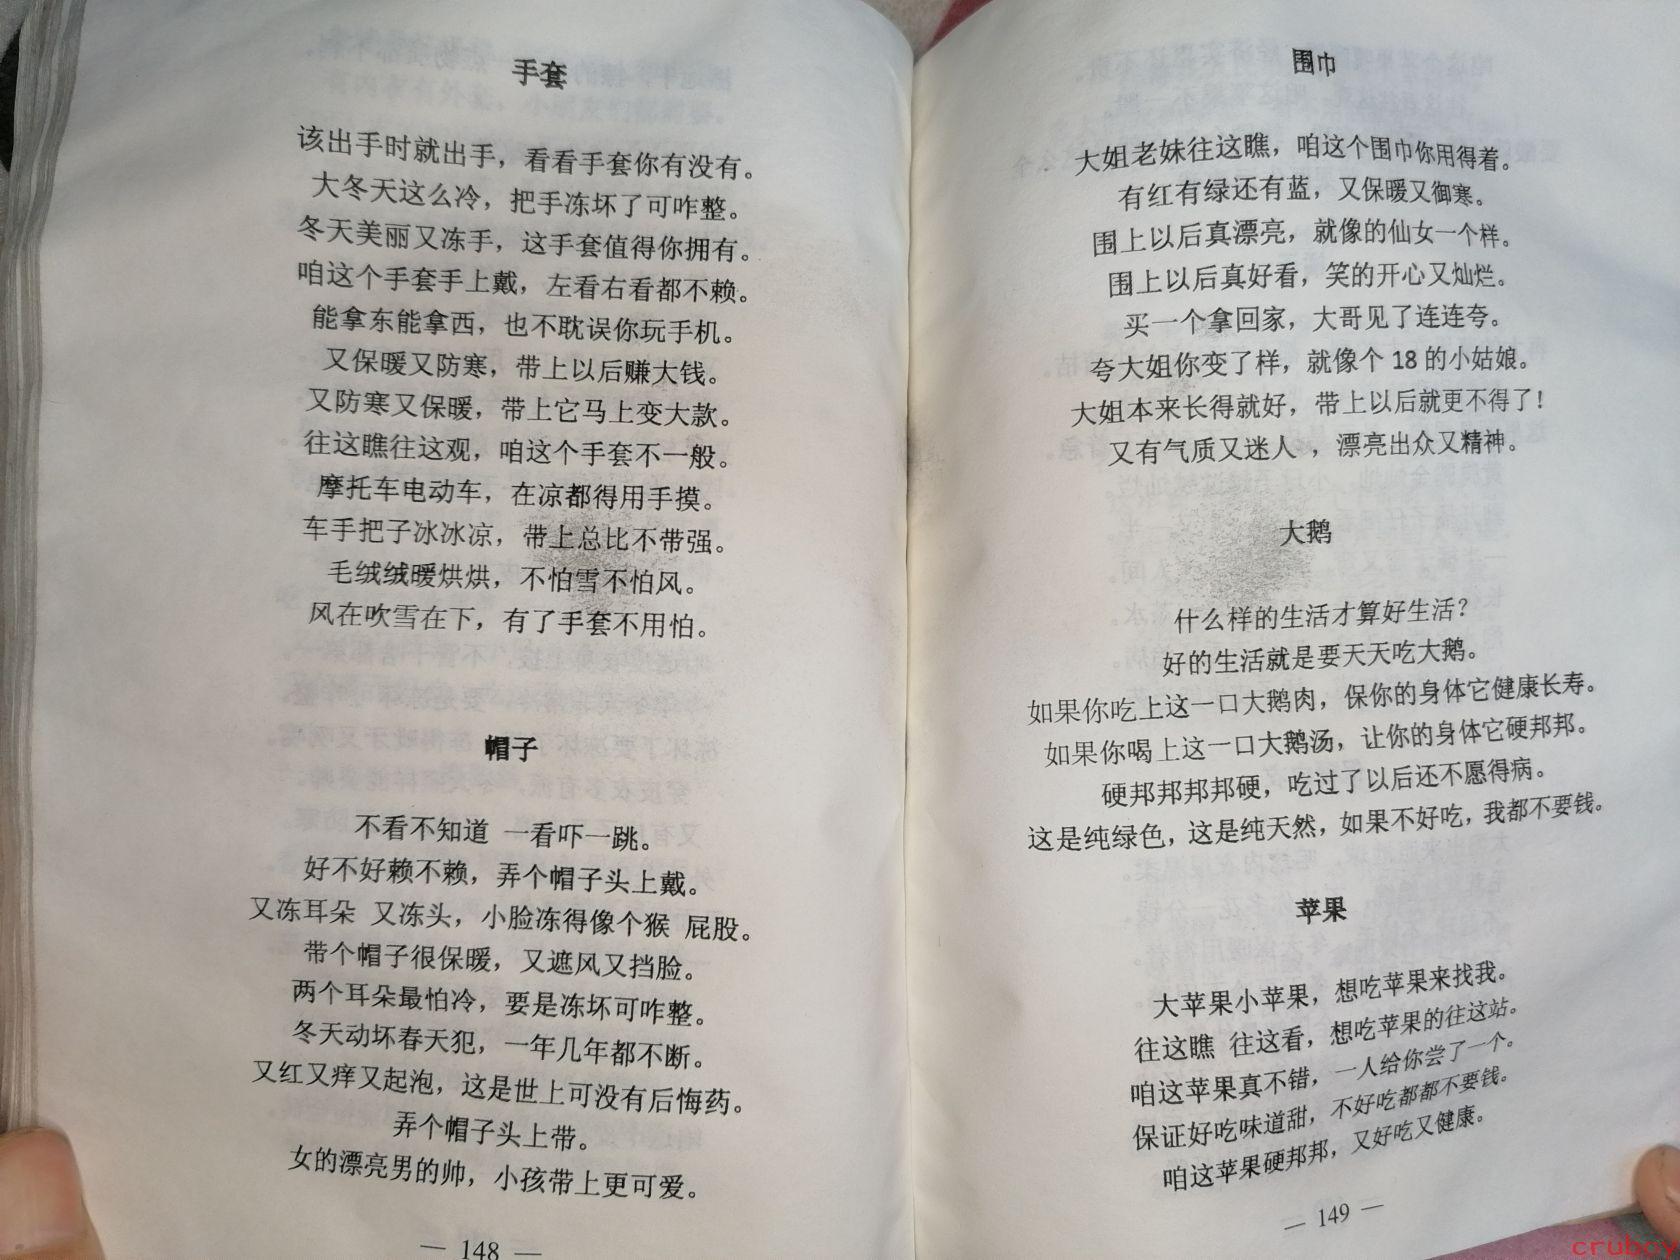 手套
该出手时就出手，看看手套你有没有。
大冬天这么冷，把手冻坏了可咋整。
冬天美丽又冻手，这手套值得你拥有。
咱这个手套手上戴，左看右看都不赖。
能拿东能拿西，也不耽误你玩手机。
又保暖又防寒，带上以后赚大钱。
又防寒又保暖，带上它马上变大款。
往这瞧往这观，咱这个手套不一般。
摩托车电动车，在凉都得用手摸。
车手把子冰冰凉，带上总比不带强。
毛绒绒暖烘烘，不怕雪不怕风。
风在吹雪在下，有了手套不用怕。
帽子
不看不知道 一看吓一跳。
好不好赖不赖，弄个帽子头上戴。
又冻耳朵 又冻头，小脸冻得像个猴 屁股。
带个帽子很保暖，又遮风又挡脸。
两个耳朵最怕冷，要是冻坏可咋整。
冬天动坏春天犯，一年几年都不断。
又红又痒又起泡，这是世上可没有后悔药。
弄个帽子头上带。
女的漂亮男的帅，小孩带上更可爱。
— 148 —
围巾
大姐老妹往这瞧，咱这个围巾你用得着。
有红有绿还有蓝，又保暖又御寒。
围上以后真漂亮，就像的仙女一个样。
围上以后真好看，笑的开心又灿烂。
买一个拿回家，大哥见了连连夸。
夸大姐你变了样，就像个 18 的小姑娘。
大姐本来长得就好，带上以后就更不得了！
又有气质又迷人 ，漂亮出众又精神。
大鹅
什么样的生活才算好生活？
好的生活就是要天天吃大鹅。
如果你吃上这一口大鹅肉，保你的身体它健康长寿。
如果你喝上这一口大鹅汤，让你的身体它硬邦邦。
硬邦邦邦邦硬，吃过了以后还不愿得病。
这是纯绿色，这是纯天然，如果不好吃，我都不要钱。
苹果
大苹果小苹果，想吃苹果来找我。
往这瞧 往这看，想吃苹果的往这站。
咱这苹果真不错，一人给你尝了一个。
保证好吃味道甜，不好吃都都不要钱。
咱这苹果硬邦邦，又好吃又健康。
— 149 —
cruboy